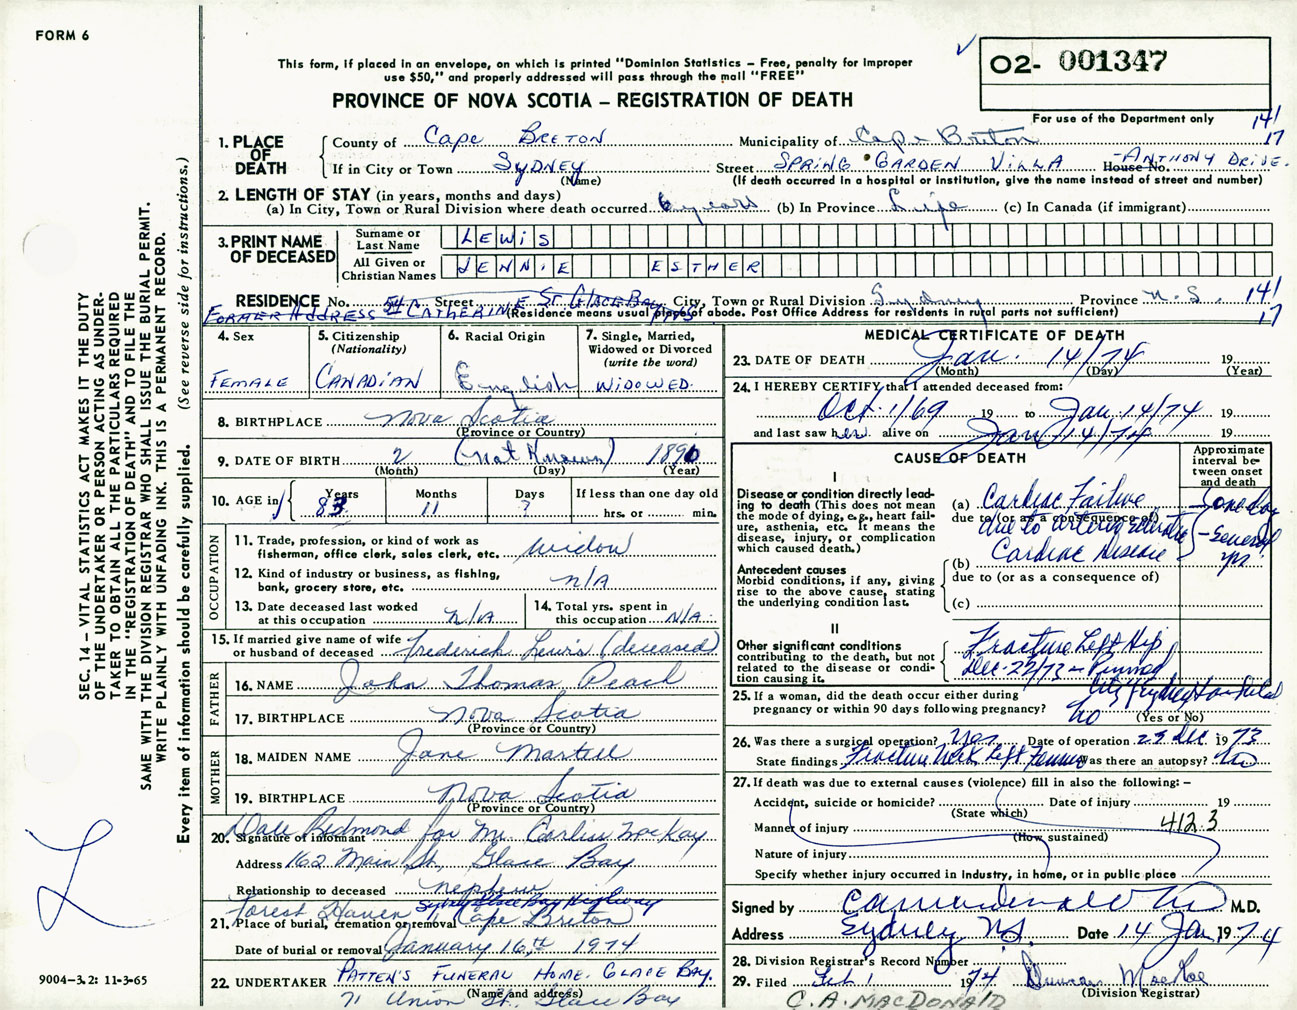 FORM 6
This form, if placed in an envelope, on which is printed "Dominion Statistics – Free, penalty for improper
use $50," and properly addressed will pass through the mail "FREE"
O2- 001347
PROVINCE OF NOVA SCOTIA – REGISTRATION OF DEATH
For use of the Department only
141
17
1. PLACE OF DEATH
County of Cape BRETON Municipality of Cape Breton
If in City or Town SYDNEY (Name) Street SPRING GARDEN VILLA House No. -ANTHONY DRIVE.
(If death occurred in a hospital or institution, give the name instead of street and number)
2. LENGTH OF STAY (in years, months and days)
(a) In City, Town or Rural Division where death occurred 6 years (b) In Province Life (c) In Canada (if immigrant)
3. PRINT NAME OF DECEASED
Surname or Last Name LEWIS
All Given or Christian Names JENNIE ESTHER
RESIDENCE No. Street E ST. GLACE BAY City, Town or Rural Division Province N.S. 141
FORMER ADDRESS CATHERINE (Residence means usual place of abode. Post Office Address for residents in rural parts not sufficient) 17
4. Sex
FEMALE
5. Citizenship
(Nationality)
CANADIAN
6. Racial Origin
English
7. Single, Married,
Widowed or Divorced
(write the word)
WIDOWED.
8. BIRTHPLACE Nova Scotia
(Province or Country)
9. DATE OF BIRTH 2 (Not Known) 1890
(Month) (Day) (Year)
10. AGE in Years 83 Months 11 Days ? If less than one day old
hrs. or min.
OCCUPATION
11. Trade, profession, or kind of work as
fisherman, office clerk, sales clerk, etc. Widow
12. Kind of industry or business, as fishing,
bank, grocery store, etc. n/A
13. Date deceased last worked
at this occupation N/A
14. Total yrs. spent in
this occupation N/A.
15. If married give name of wife
or husband of deceased Frederick Lewis (deceased)
FATHER
16. NAME John Thomas Peach
17. BIRTHPLACE Nova Scotia
(Province or Country)
MOTHER
18. MAIDEN NAME Jane Martell
19. BIRTHPLACE Nova Scotia
(Province or Country)
20. Signature of informant Dale Redmond for Mr. Corliss MacKay.
Address 162 Main St, Glace Bay
Relationship to deceased nephew
Forest Haven Sydney Glace Bay Highway
21. Place of burial, cremation or removal Cape Breton
Date of burial or removal January 16th, 1974
22. UNDERTAKER PATTEN'S FUNERAL HOME. GLACE BAY.
(Name and address)
71 Union St. Glace Bay
MEDICAL CERTIFICATE OF DEATH
23. DATE OF DEATH Jan. 14/74 19
(Month) (Day) (Year)
24. I HEREBY CERTIFY that I attended deceased from:
Oct. 1/69 19 to Jan. 14/74 19
and last saw her alive on Jan 14/74 19
CAUSE OF DEATH
Approximate interval between onset and death
I
Disease or condition directly leading to death (This does not mean the mode of dying, e.g., heart failure, asthenia, etc. It means the disease, injury, or complication which caused death.)
(a) Cardiac Failure
due to (or as a consequence of)
one day
Cardiac Disease
Several yrs
Antecedent causes
Morbid conditions, if any, giving rise to the above cause, stating the underlying condition last.
(b)
due to (or as a consequence of)
(c)
II
Other significant conditions
contributing to the death, but not related to the disease or condition causing it.
Fracture Left Hip
Dec. 22/73 – Pinned
City Sydney Hospital
25. If a woman, did the death occur either during
pregnancy or within 90 days following pregnancy? No
(Yes or No)
26. Was there a surgical operation? Yes Date of operation 23 Dec 1973
State findings Fracture Neck Left Femur Was there an autopsy? No
27. If death was due to external causes (violence) fill in also the following: –
Accident, suicide or homicide? Date of injury 19
(State which)
Manner of injury 412.3
(How sustained)
Nature of injury
Specify whether injury occurred in industry, in home, or in public place
Signed by M.D.
Address Sydney N.S. Date 14 Jan 1974
28. Division Registrar's Record Number
29. Filed Feb 1 1974
(Division Registrar)
C.A. MACDONALD
SEC. 14 – VITAL STATISTICS ACT MAKES IT THE DUTY
OF THE UNDERTAKER OR PERSON ACTING AS UNDER-
TAKER TO OBTAIN ALL THE PARTICULARS REQUIRED
IN THE "REGISTRATION OF DEATH" AND TO FILE THE
SAME WITH THE DIVISION REGISTRAR WHO SHALL ISSUE THE BURIAL PERMIT.
WRITE PLAINLY WITH UNFADING INK. THIS IS A PERMANENT RECORD.
Every item of information should be carefully supplied. (See reverse side for instructions.)
9004-3.2: 11-3-65